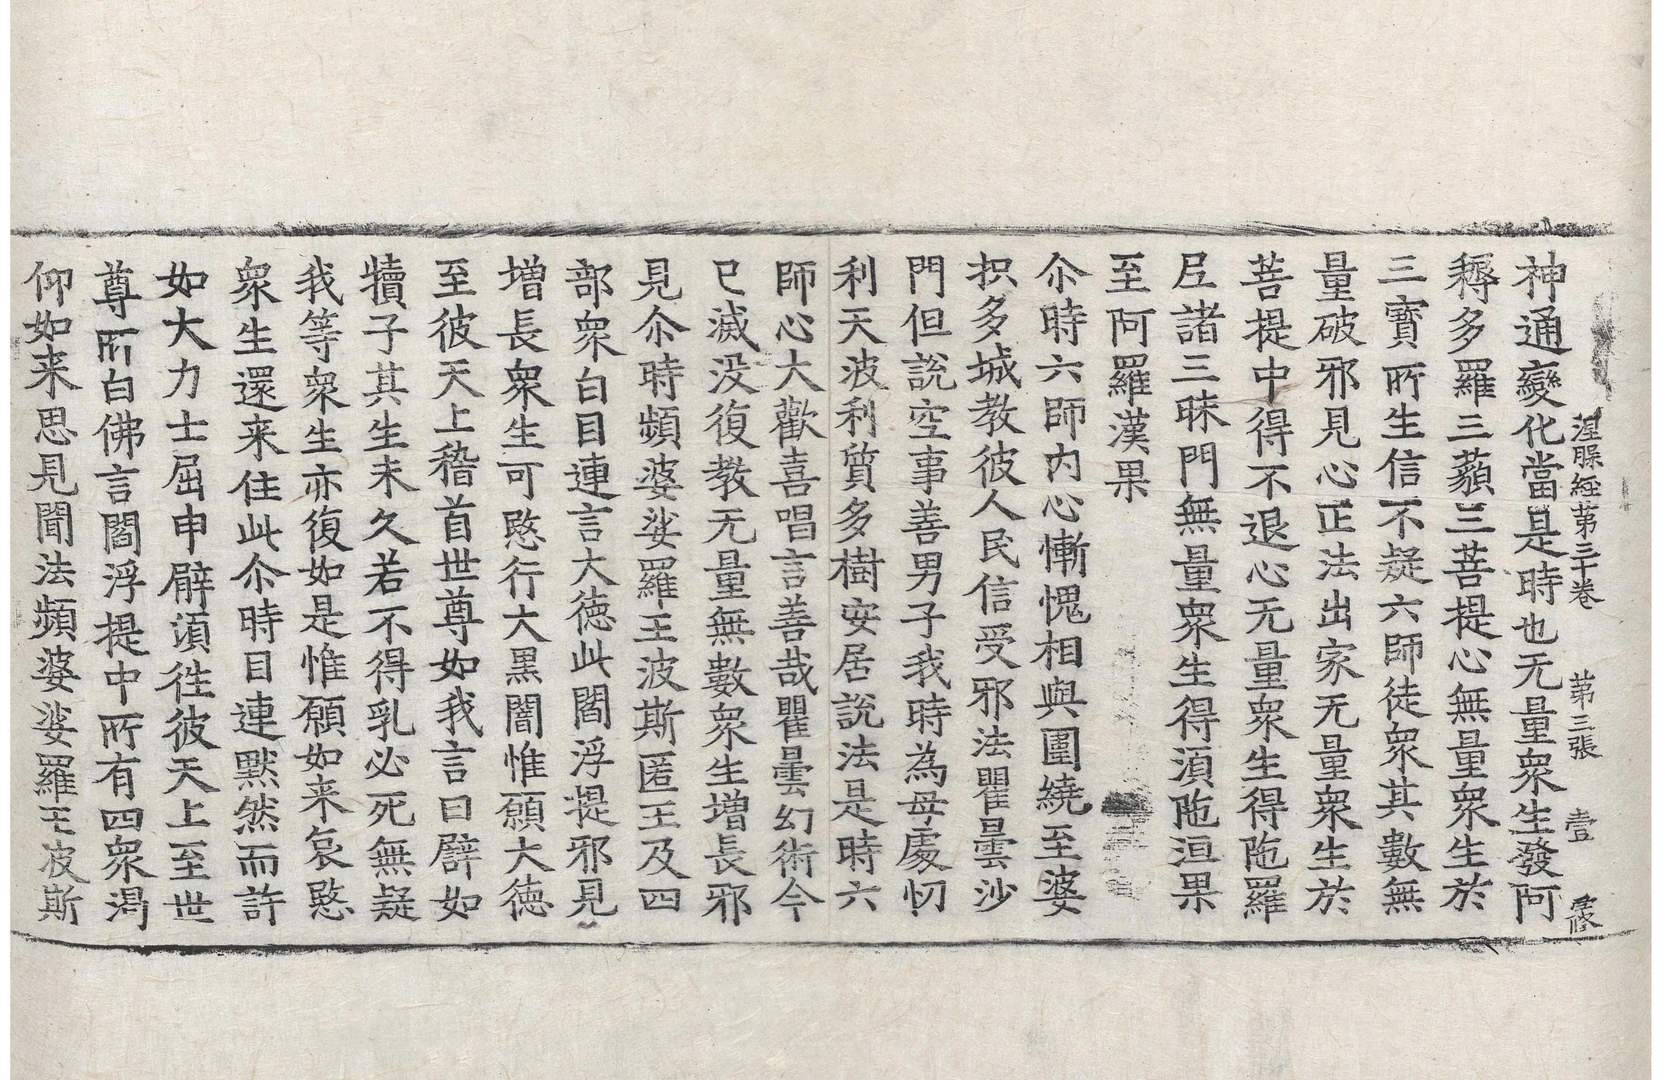 涅槃經第三十卷 第三張 壹
神通變化當是時也无量衆生發阿
耨多羅三藐三菩提心無量衆生於
三寶所生信不疑六師徒衆其數無
量破邪見心正法出家无量衆生於
菩提中得不退心无量衆生得陁羅
尼諸三昧門無量衆生得湏陁洹果
至阿羅漢果
尒時六師內心慚愧相與圍繞至婆
枳多城教彼人民信受邪法瞿曇沙
門但說空事善男子我時為母處忉
利天波利質多樹安居說法是時六
師心大歡喜唱言善哉瞿曇幻術今
已滅没復教无量無數衆生增長邪
見尒時頻婆娑羅王波斯匿王及四
部衆白目連言大德此閻浮提邪見
增長衆生可愍行大黑闇惟願大德
至彼天上稽首世尊如我言曰譬如
犢子其生未久若不得乳必死無疑
我等衆生亦復如是惟願如来哀愍
衆生還来住此尒時目連黙然而許
如大力士屈申臂湏往彼天上至世
尊所白佛言閻浮提中所有四衆渴
仰如来思見聞法頻婆娑羅王波斯